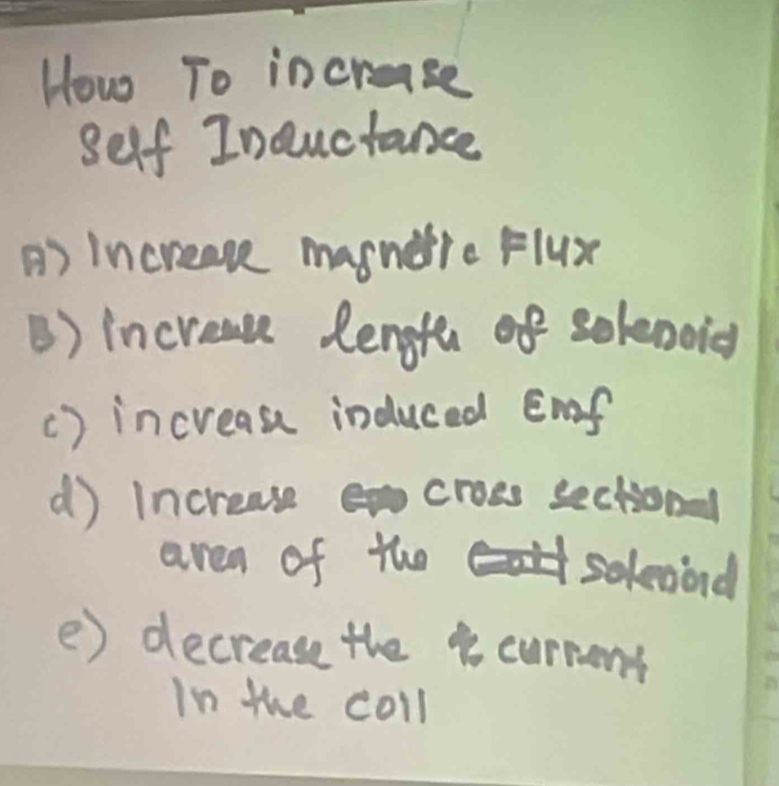 How To increase
Self Inductance
A) Increase magnetic Flux
B) increase length of solenoid
c) increase induced Emf
d) Increase cross sectional
area of the solenoid
e) decrease the current
In the coil